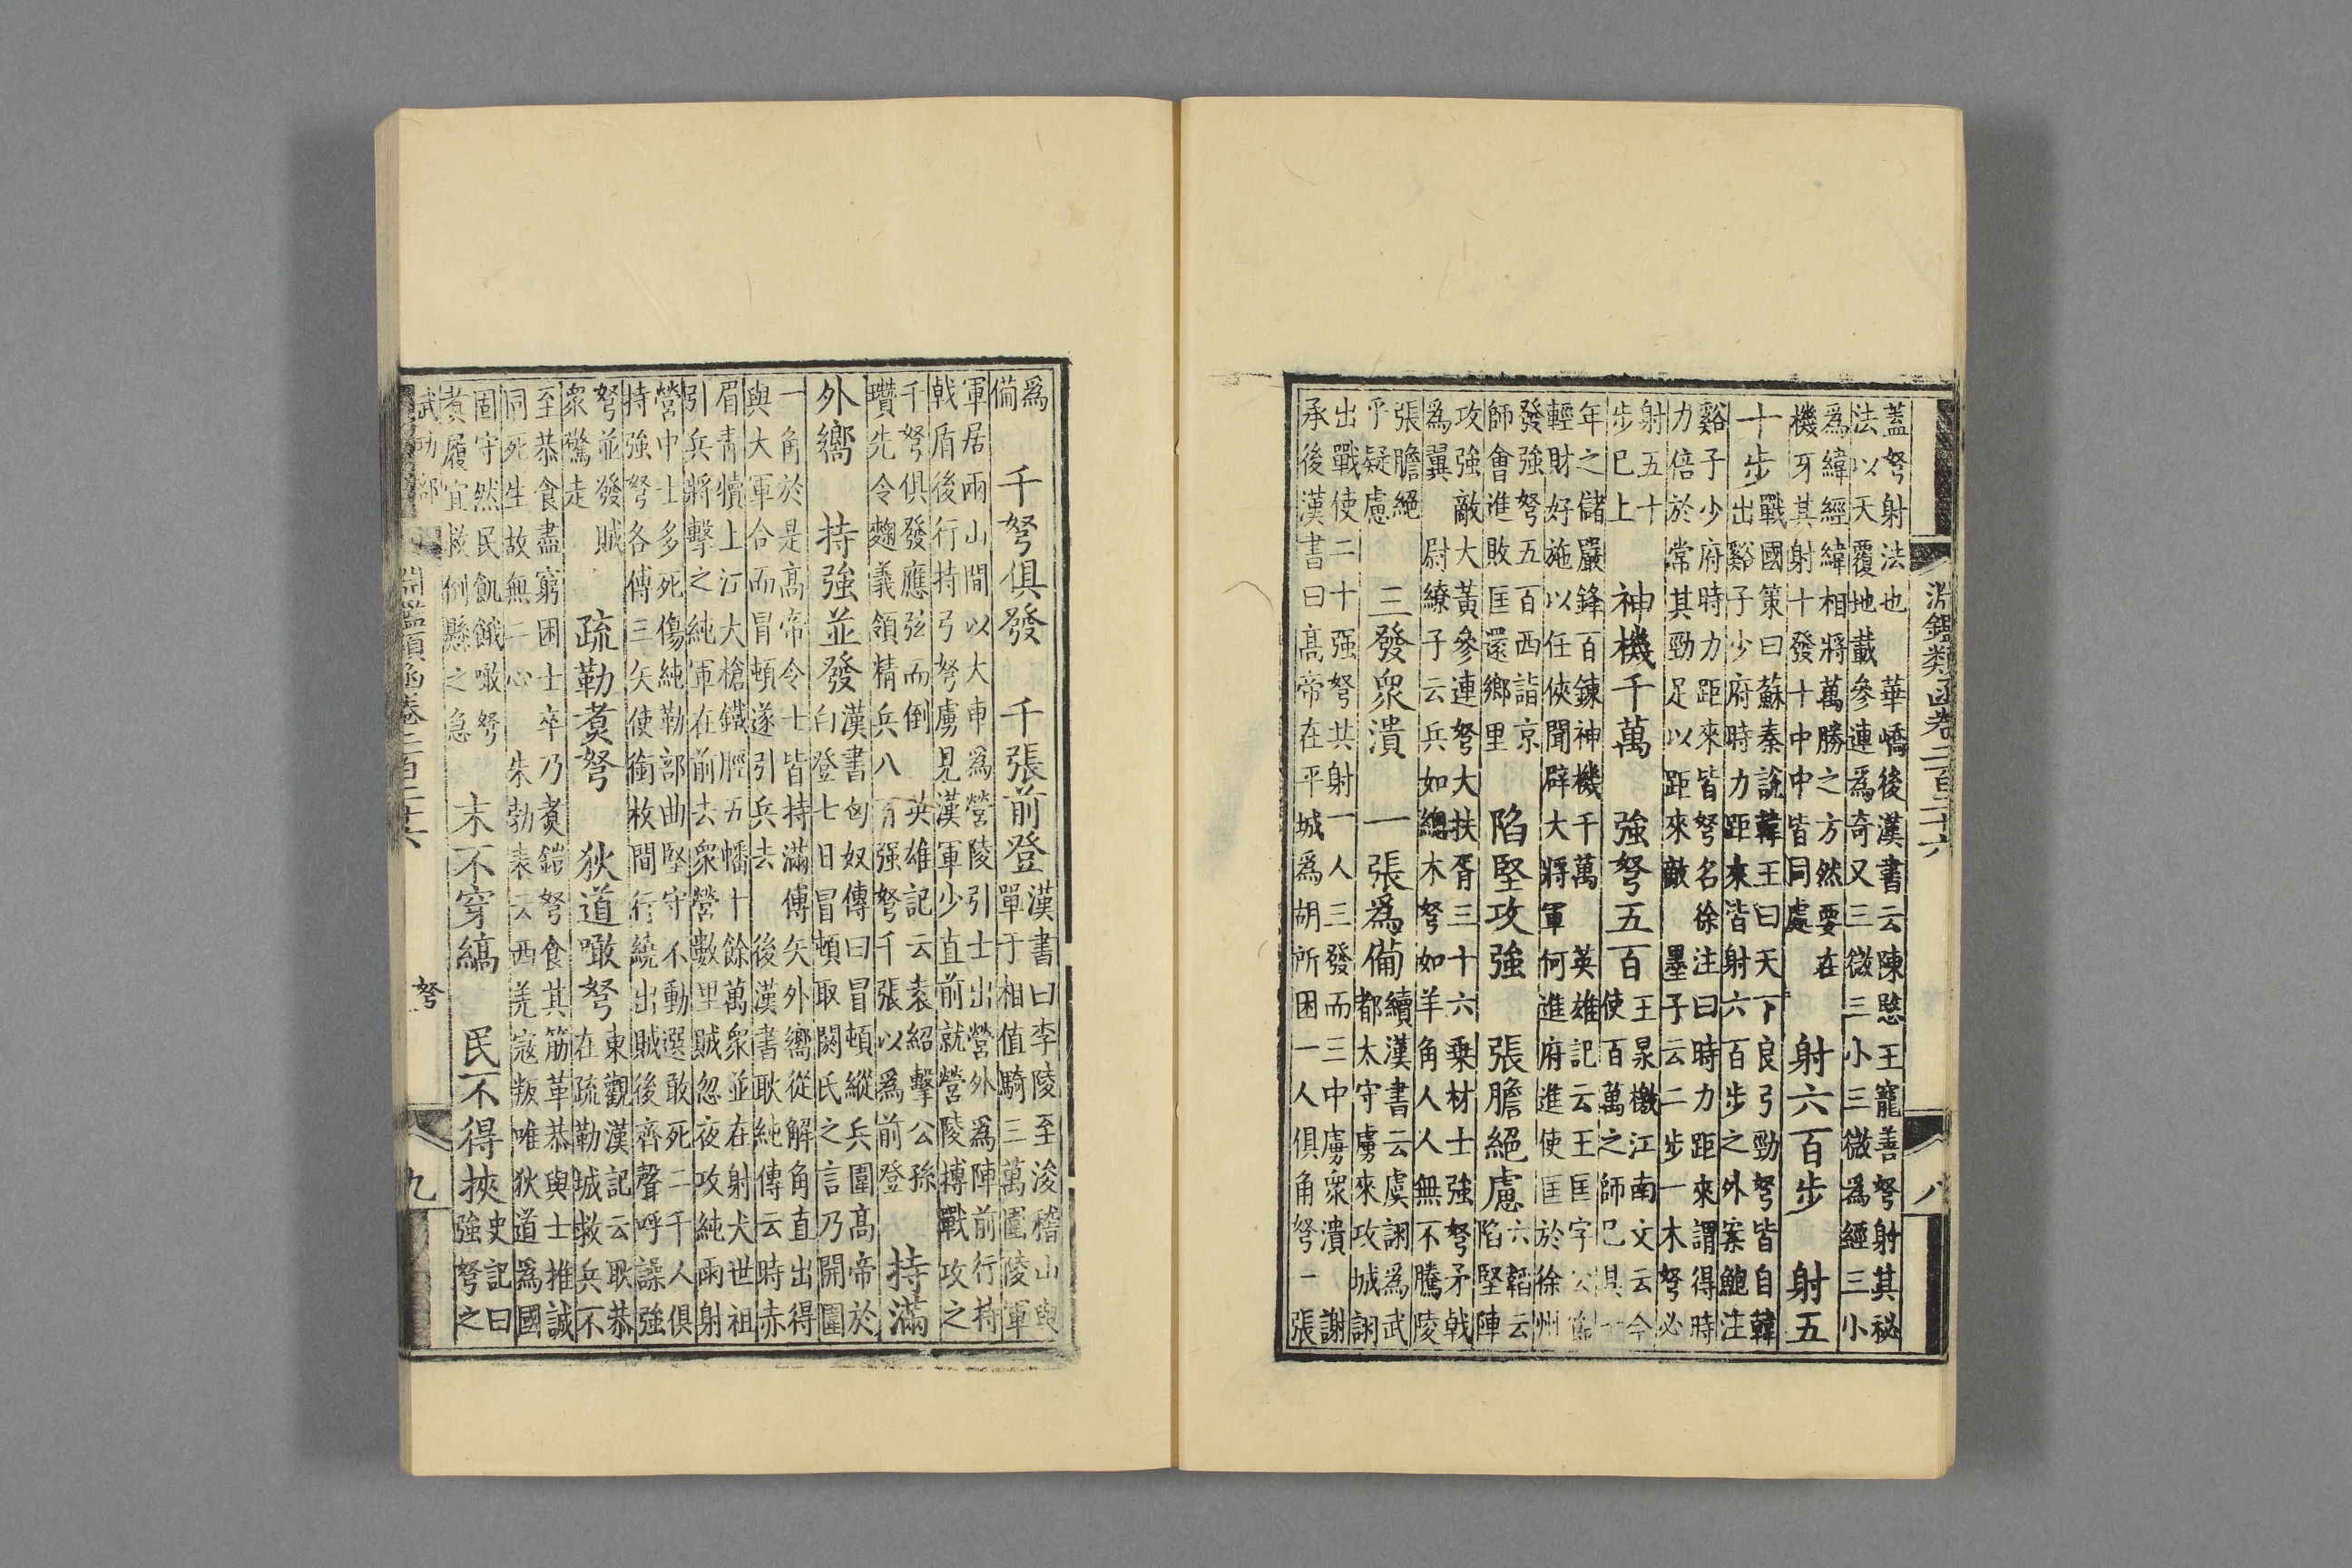 淵鑑類函卷二百二十六 八
蓋弩射法也 華嶠後漢書云陳愍王寵善弩射其秘
法以天覆地載參連為奇又三微三小三微為經三小
為緯經緯相將萬勝之方然要在
機牙其射十發十中中皆同處
射六百步 射五
十步
戰國策曰蘇秦說韓王曰天下良弓勁弩皆自韓
出谿子少府時力距來皆射六百步之外案鮑注
谿子少府時力距來皆弩名徐注曰時力距來謂得時
力倍於常其勁足以距來敵 墨子云二步一木弩必
射五十
步已上
神機千萬 強弩五百
王泉檄江南文云今
使百萬之師已具十
年之儲嚴鋒百鍊神機千萬 英雄記云王匡字公節
輕財好施以任俠聞辟大將軍何進府進使匡於徐州
發強弩五百西詣京
師會進敗匡還鄉里
陷堅攻強 張膽絕慮
六韜云
陷堅陣
攻強敵大黃參連弩大扶胥三十六乘材士強弩矛戟
為翼 尉繚子云兵如總木弩如羊角人人無不騰陵
張膽絕
乎疑慮
三發眾潰 一張為備
續漢書云虞詡為武
都太守虜來攻城詡
出戰使二十强弩共射一人三發而三中虜衆潰 謝
承後漢書曰高帝在平城為胡所困一人俱角弩一張
為
備
千弩俱發 千張前登
漢書曰李陵至浚稽山與
單于相值騎三萬圍陵軍
軍居兩山間以大車為營陵引士出營外為陣前行持
戟盾後行持弓弩虜見漢軍少直前就營陵搏戰攻之
千弩俱發應弦而倒 英雄記云袁紹擊公孫
瓚先令麴義領精兵八百强弩千張以為前登
持滿
外嚮 持強並發
漢書匈奴傳曰冒頓縱兵圍高帝於
白登七日冒頓取閼氏之言乃開圍
一角於是高帝令士皆持滿傅矢外嚮從解角直出得
與大軍合而冒頓遂引兵去 後漢書耿純傳云時赤
眉青犢上江大槍鐵脛五幡十餘萬衆並在射犬世祖
引兵將擊之純軍在前去衆營數里賊忽夜攻純雨射
營中士多死傷純勒部曲堅守不動選敢死二千人俱
持強弩各傅三矢使銜枚間行繞出賊後齊聲呼譟強
弩並發賊
衆驚走
疏勒煑弩 狄道噉弩
東觀漢記云耿恭
在疏勒城救兵不
至恭食盡窮困士卒乃煑鎧弩食其筋革恭與士推誠
同死生故無二心 朱勃表云西羌寇叛唯狄道為國
固守然民飢餓噉弩
煑履宜救倒懸之急
末不穿縞 民不得挾
史記曰
強弩之
武功部 淵鑑類函卷二百二十六 弩 九